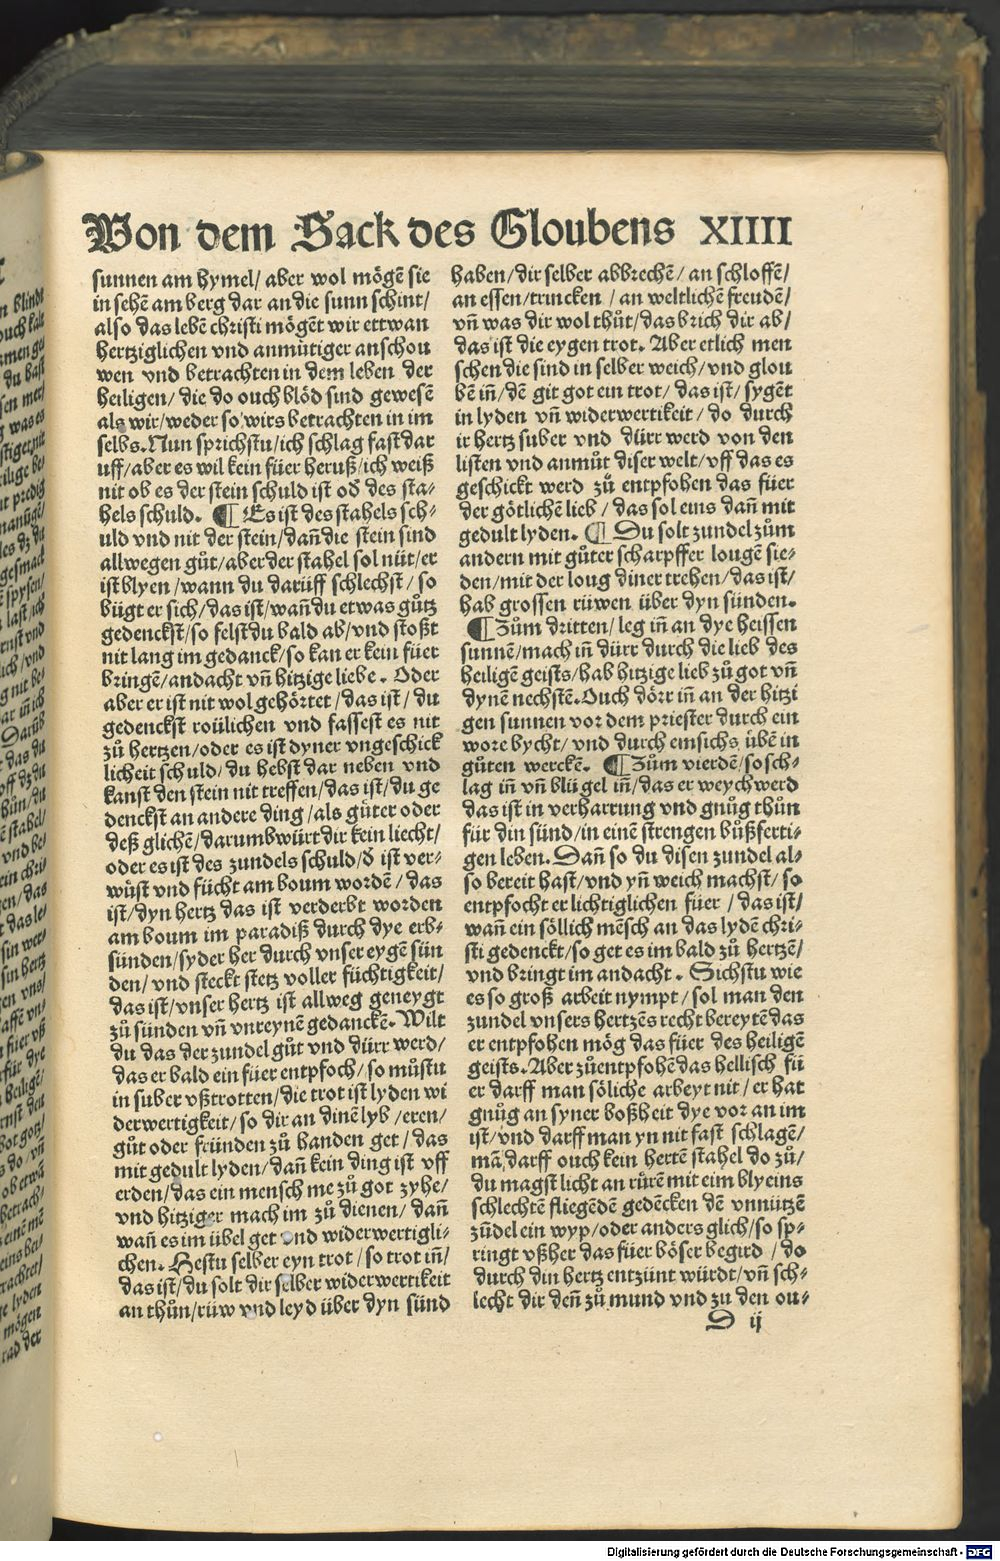 Von dem Sack des Gloubens XIIII
sunnen am hymel/ aber wol mögē sie
in sehē am berg dar an die sunn schint/
also das lebē christi mögēt wir ettwan
hertziglichen vnd anmütiger anschou
wen vnd betrachten in dem leben der
heiligen/ die do ouch blöd sind gewesē
als wir/weder so wirs betrachten in im
selbs. Nun sprichstu/ich schlag fast dar
uff/aber es wil kein füer heruß/ich weiß
nit ob es der stein schuld ist oď des sta⸗
hels schuld. ¶ Es ist des stahels sch⸗
uld vnd nit der stein/dañ die stein sind
allwegen gůt/aber der stahel sol nüt/er
ist blyen/wann du darüff schlechst/ so
bügt er sich/das ist/wañ du etwas gůtz
gedenckst/so felst du bald ab/vnd stoßt
nit lang im gedanck/so kan er kein füer
bringē/andacht vñ hitzige liebe. Oder
aber er ist nit wol gehörtet/das ist/ du
gedenckst roülichen vnd fassest es nit
zů hertzen/oder es ist dyner vngeschick
licheit schuld/du hebst dar neben vnd
kanst den stein nit treffen/das ist/du ge
denckst an andere ding/als gůter oder
deß glichē/darumb würt dir kein liecht/
oder es ist des zundels schuld/ď ist ver⸗
wůst vnd fücht am boum wordē/das
ist/dyn hertz das ist verderbt worden
am boum im paradiß durch dye erb⸗
sünden/syder her durch vnser eygē sün
den/ vnd steckt stetz voller füchtigkeit/
das ist/vnser hertz ist allweg geneygt
zů sünden vñ vnreynē gedanckē. Wilt
du das der zundel gůt vnd dürr werd/
das er bald ein füer entpfoch/so můstu
in suber vßtrotten/die trot ist lyden wi
derwertigkeit/so dir an dinē lyb/eren/
gůt oder fründen zů handen get/das
mit gedult lyden/dañ kein ding ist vff
erden/das ein mensch me zů got zyhe/
vnd hitziger mach im zů dienen/ dañ
wañ es im übel get vnd widerwertigli⸗
chen. Hestu selber eyn trot/so trot iñ/
das ist/du solt dir selber widerwertikeit
an thůn/rüw vnd leyd über dyn sünd
haben/dir selber abbrechē/an schloffē/
an essen/trincken/an weltlichē freudē/
vñ was dir wol thůt/das brich dir ab/
das ist die eygen trot. Aber etlich men
schen die sind in selber weich/vnd glou
bē iñ/dē git got ein trot/das ist/sygēt
in lyden vñ widerwertikeit/ do durch
ir hertz suber vnd dürr werd von den
listen vnd anmůt diser welt/vff das es
geschickt werd zů entpfohen das füer
der götlichē lieb/das sol eins dañ mit
gedult lyden. ¶ Du solt zundel zům
andern mit gůter scharpffer lougē sie⸗
den/mit der loug diner trehen/das ist/
hab grossen rüwen über dyn sünden.
¶ Zům dritten/leg iñ an dye heissen
sunnē/mach iñ dürr durch die lieb des
heiligē geists/hab hitzige lieb zů got vñ
dynē nechstē. Ouch dörr iñ an der hitzi
gen sunnen vor dem priester durch ein
wore bycht/vnd durch emsichs übē in
gůten werckē. ¶ Zům vierdē/so sch⸗
lag iñ vñ blügel iñ/das er weych werd
das ist in verharrung vnd gnůg thůn
für din sünd/in einē strengen bůßferti⸗
gen leben. Dañ so du disen zundel al⸗
so bereit hast/vnd yñ weich machst/so
entpfocht er lichtiglichen füer/das ist/
wañ ein söllich mēsch an das lydē chri⸗
sti gedenckt/so get es im bald zů hertzē/
vnd bringt im andacht. Sichstu wie
es so groß arbeit nympt/sol man den
zundel vnsers hertzēs recht bereytē das
er entpfohen mög das füer des heiligē
geists. Aber zůentpfohē das hellisch fü
er darff man söliche arbeyt nit/er hat
gnůg an syner boßheit dye vor an im
ist/vnd darff man yn nit fast schlagē/
mā darff ouch kein hertē stahel do zů/
du magst licht an rürē mit eim blyeins
schlechtē fliegēdē gedēcken dē vnnützē
zůdel ein wyp/oder anders glich/so sp⸗
ringt vßher das füer böser begird/do
durch din hertz entzünt würdt/vñ sch⸗
lecht dir deñ zů mund vnd zu den ou⸗
D ij
Digitalisierung gefördert durch die Deutsche Forschungsgemeinschaft - DFG